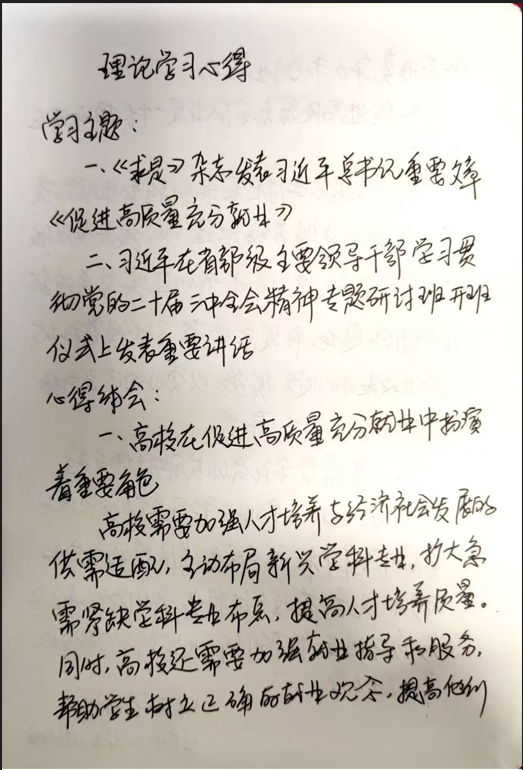 理论学习心得
学习主题：
一、《求是》杂志发表习近平总书记重要文章
《促进高质量充分就业》
二、习近平在省部级主要领导干部学习贯
彻党的二十届三中全会精神专题研讨班开班
仪式上发表重要讲话
心得体会：
一、高校在促进高质量充分就业中扮演
着重要角色
高校需要加强人才培养与经济社会发展的
供需适配，主动布局新兴学科专业，扩大急
需紧缺学科专业布点，提高人才培养质量。
同时，高校还需要加强就业指导和服务，
帮助学生树立正确的就业观念，提高他们